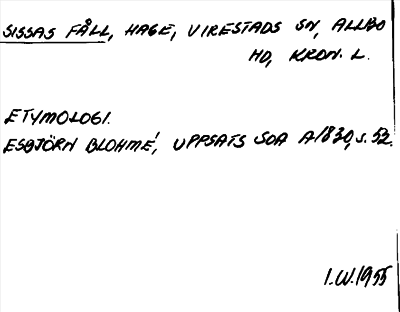 SISSAS FÅLL, HAGE, VIRESTADS SN, ALLBO
HD, KRON. L.
ETYMOLOGI.
ESBJÖRN BLOHMÉ, UPPSATS SOA A1830, s. 52.
I.W. 1955